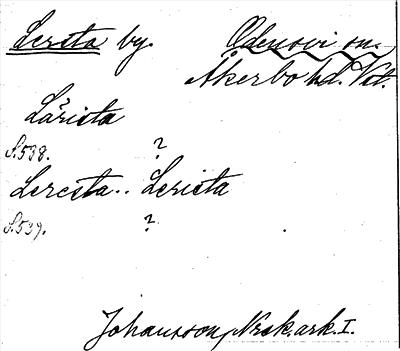 Lersta by. Odensvi sn.
Åkerbo hd. Vst.
Lårista
S. 538. ?
Lercsta.. Lerista
S. 539. ?
Johansson, Norsk. ark. I.